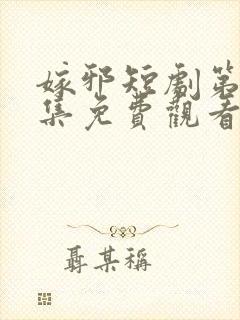 嫁邪短劇第
集免費觀看
聶某稱